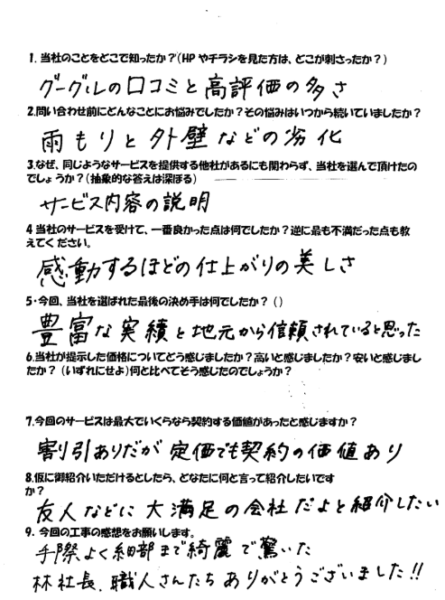 1. 当社のことをどこで知ったか?(HPやチラシを見た方は、どこが刺さったか?)
グーグルの口コミと高評価の多さ
2.問い合わせ前にどんなことにお悩みでしたか?その悩みはいつから続いていましたか?
雨もりと外壁などの劣化
3.なぜ、同じようなサービスを提供する他社があるにも関わらず、当社を選んで頂けたの
でしょうか?(抽象的な答えは深ぼる)
サービス内容の説明
4 当社のサービスを受けて、一番良かった点は何でしたか?逆に最も不満だった点も教
えてください。
感動するほどの仕上がりの美しさ
5・今回、当社を選ばれた最後の決め手は何でしたか?()
豊富な実績と地元から信頼されていると思った
6.当社が提示した価格についてどう感じましたか?高いと感じましたか?安いと感じまし
たか? (いずれにせよ)何と比べてそう感じたのでしょうか?
7.今回のサービスは最大でいくらなら契約する価値があったと感じますか?
割引ありだが定価でも契約の価値あり
8.仮に御紹介いただけるとしたら、どなたに何と言って紹介したいです
か?
友人などに大満足の会社だよと紹介したい
9. 今回の工事の感想をお願いします。
手際よく細部まで綺麗で驚いた
林社長、職人さんたちありがとうございました!!